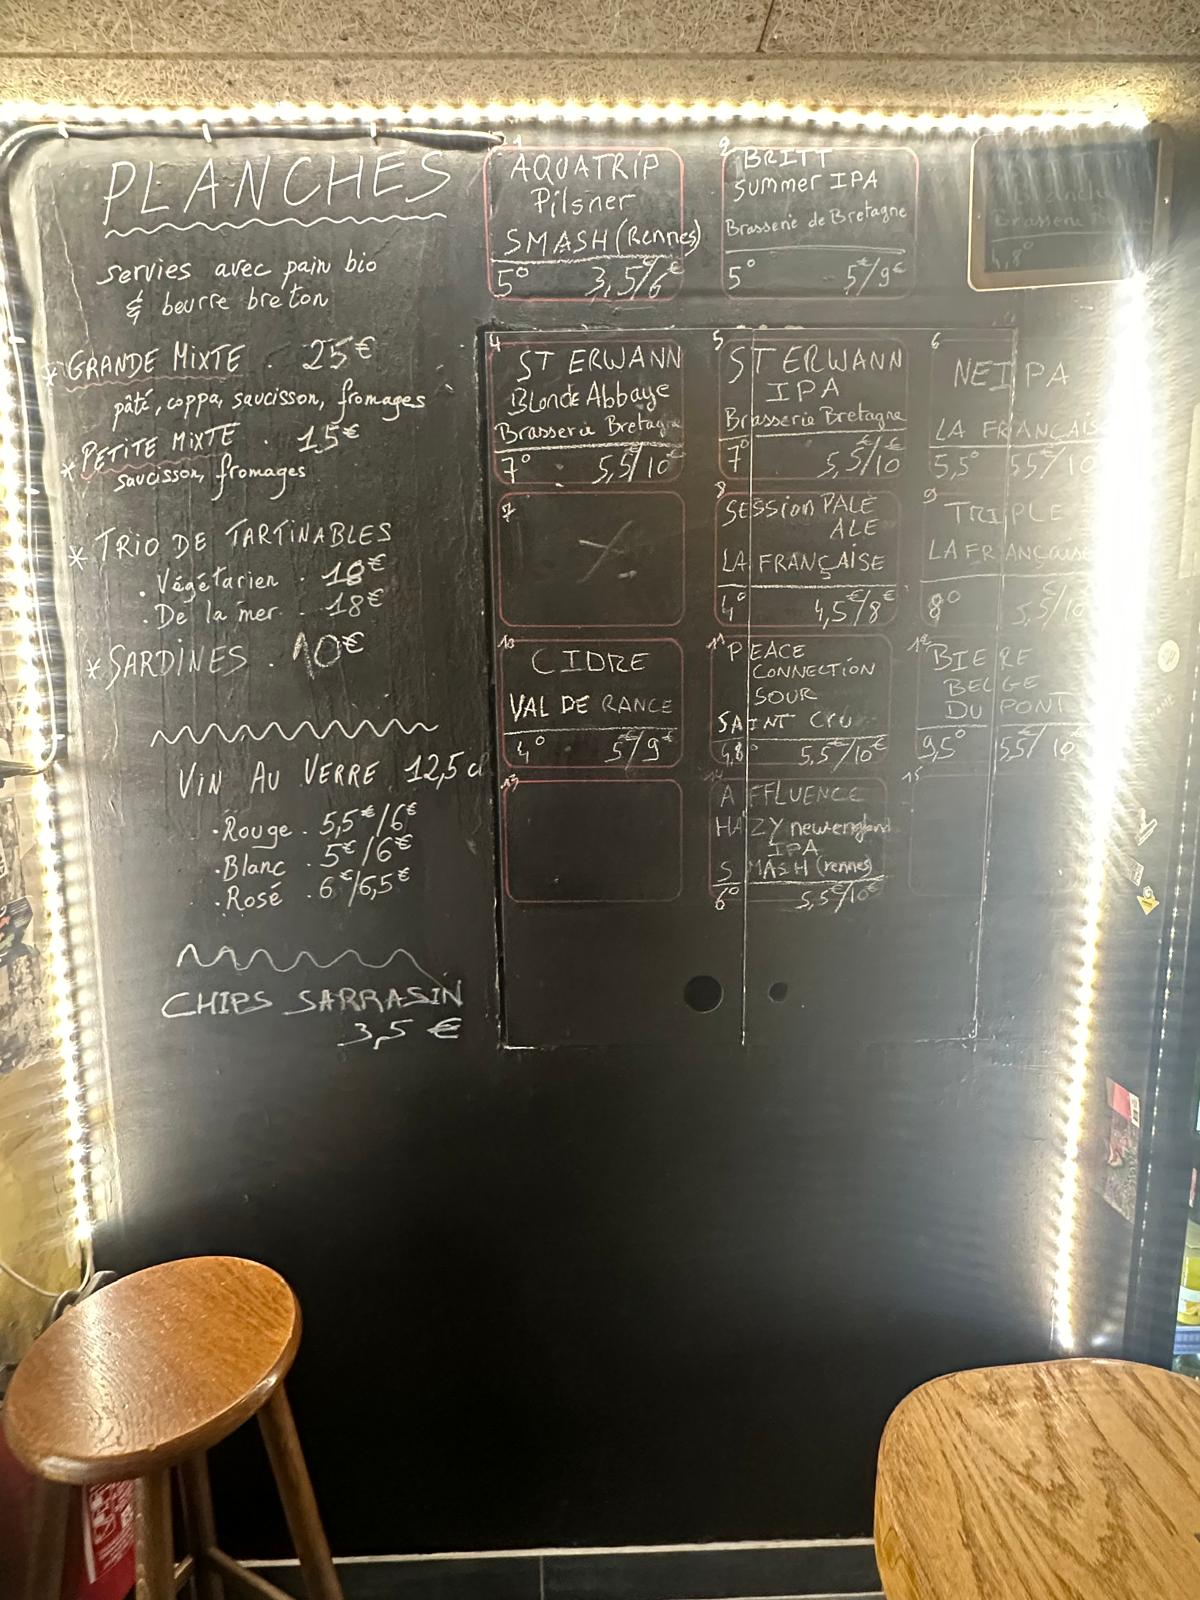 PLANCHES
servies avec pain bio
& beurre breton
* GRANDE MIXTE . 25€
pâté, coppa, saucisson, fromages
* PETITE MIXTE . 15€
saucisson, fromages
* TRIO DE TARTINABLES
. Végétarien . 18€
. De la mer . 18€
* SARDINES . 10€
VIN AU VERRE 12,5 cl
. Rouge . 5,5€/6€
. Blanc . 5€/6€
. Rosé . 6€/6,5€
CHIPS SARRASIN
3,5 €
1
AQUATRIP
Pilsner
SMASH (Rennes)
5° 3,5€/6€
2
BRITT
Summer IPA
Brasserie de Bretagne
5° 5€/9€
Brasserie
4,8°
4
ST ERWANN
Blonde Abbaye
Brasserie Bretagne
7° 5,5€/10€
5
ST ERWANN
IPA
Brasserie Bretagne
7° 5,5€/10€
6
NEIPA
LA FRANÇAIS
5,5° 5,5€/10
7
8
SESSION PALE
ALE
LA FRANÇAISE
4° 4,5€/8€
9
TRIPLE
LA FRANÇAISE
8° 5,5€/10
10
CIDRE
VAL DE RANCE
4° 5€/9€
11
PEACE
CONNECTION
SOUR
SAINT CRU
4,8° 5,5€/10€
12
BIERE
BELGE
DU PONT
9,5° 5,5€/10€
13
14
AFFLUENCE
HAZY new england
IPA
SMASH (rennes)
6° 5,5€/10€
15